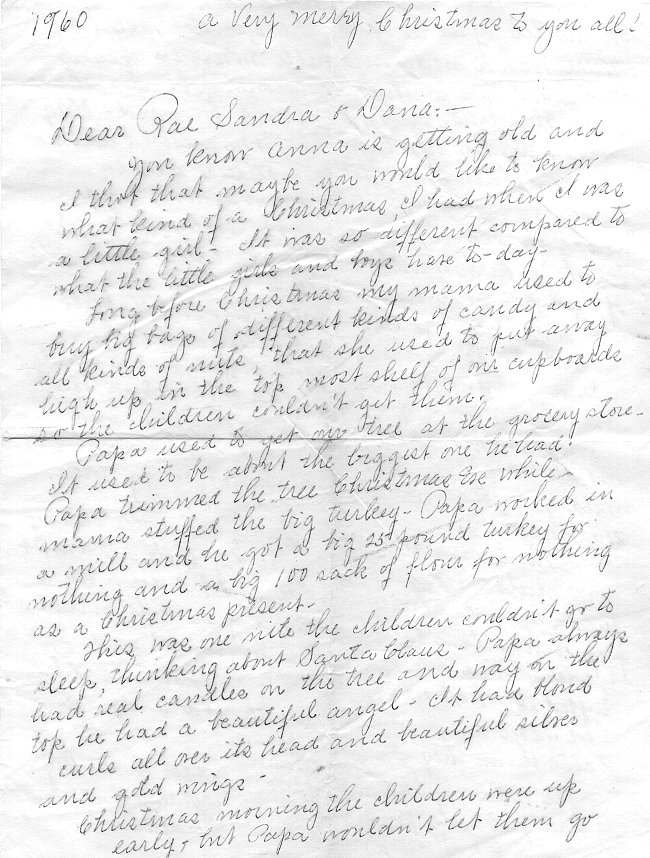 1960 a Very merry Christmas to you all!
Dear Rae Sandra & Dana:-
You know Anna is getting old and
I thot that maybe you would like to know
what kind of a Christmas, I had when I was
a little girl - It was so different compared to
what the little girls and boys have to-day -
Long before Christmas my mama used to
buy big bags of different kinds of candy and
all kinds of nuts, that she used to put away
high up in the top most shelf of our cupboards
so the children couldn't get them.
Papa used to get our tree at the grocery store -
It used to be about the biggest one he had.
Papa trimmed the tree Christmas Eve while
mama stuffed the big turkey - Papa worked in
a mill and he got a big 25 pound turkey for
nothing and a big 100 sack of flour for nothing
as a Christmas present -
This was one nite the children couldn't go to
sleep, thinking about Santa Claus - Papa always
had real candles on the tree and way on the
top he had a beautiful angel - It had blond
curls all over its head and beautiful silver
and gold wings -
Christmas morning the children were up
early, but Papa wouldn't let them go